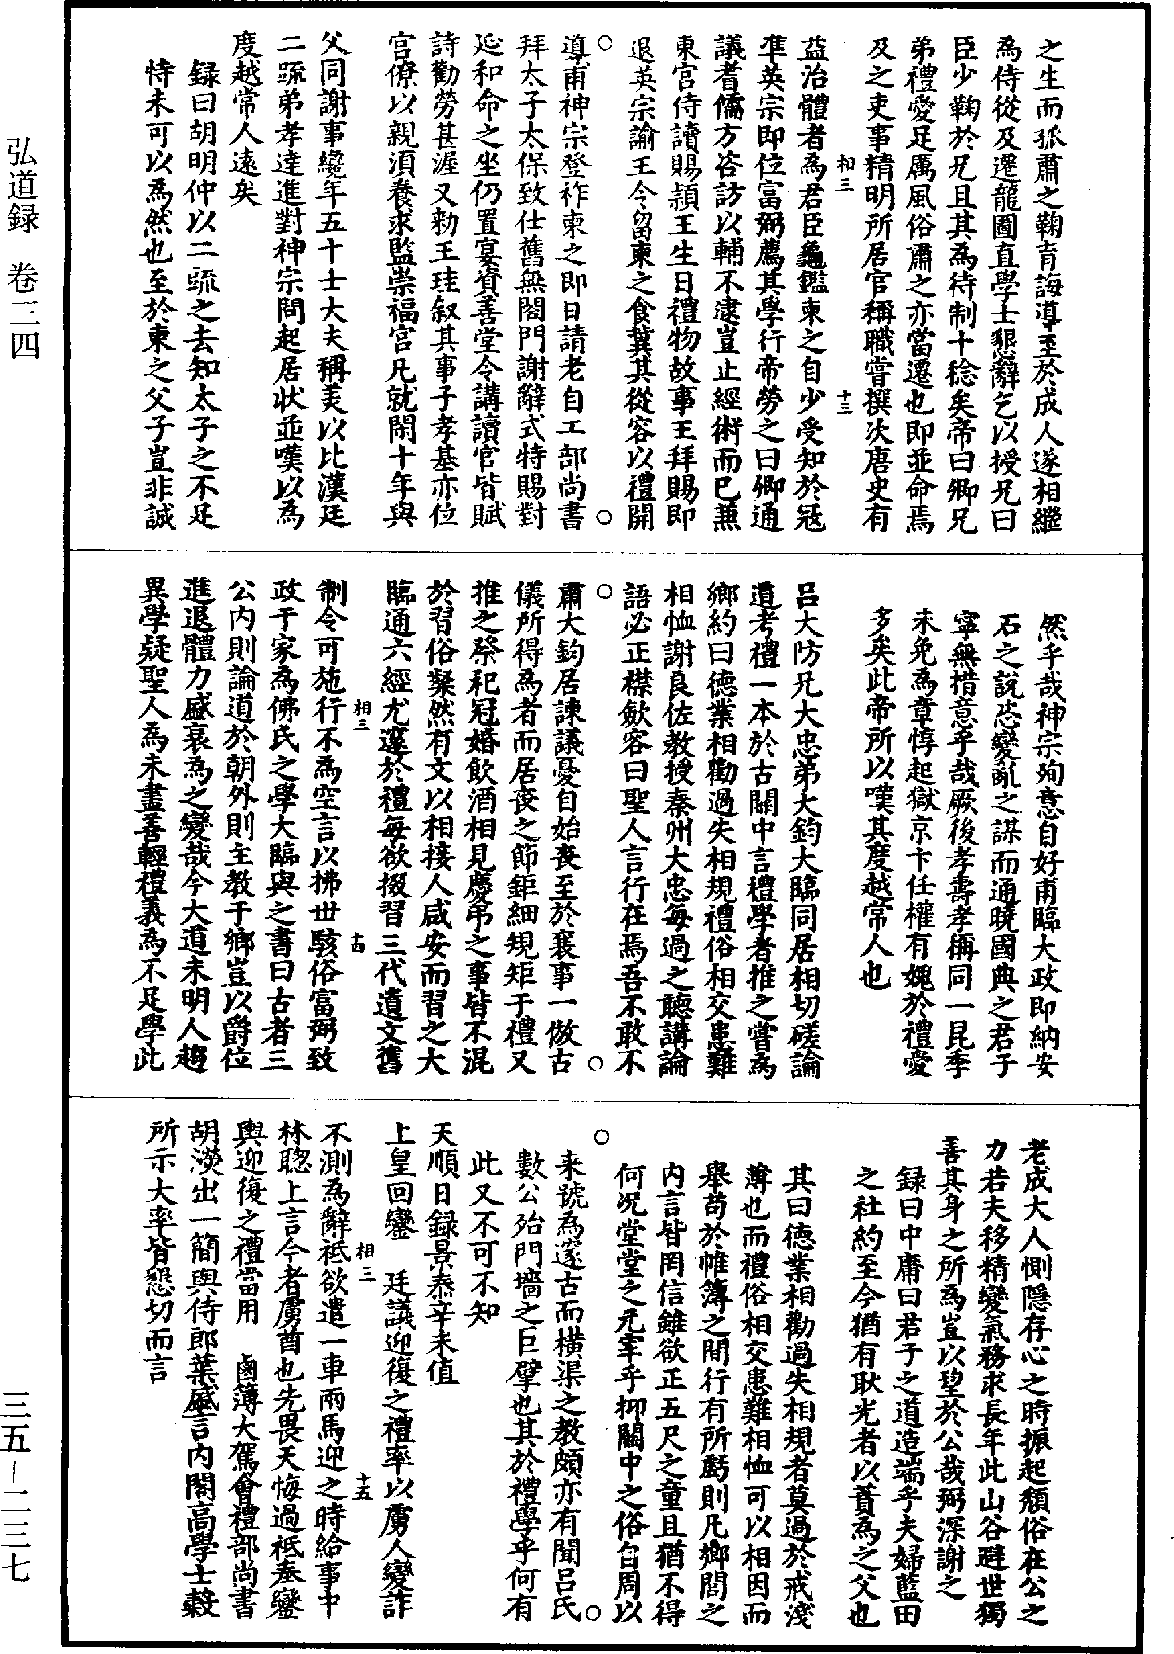 弘道録　卷三四
三五－二三七
之生而孤肅之鞠育誨導至於成人遂相繼
為侍從及遷龍圖直學士懇辭乞以授兄曰
臣少鞠於兄且其為待制十稔矣帝曰卿兄
弟禮愛足厲風俗肅之亦當遷也即並命焉
及之吏事精明所居官稱職嘗撰次唐史有
相三　十三
益治體者為君臣龜鑑東之自少受知於寇
準英宗即位富弼薦其學行帝勞之曰卿通
議者儒方咨訪以輔不逮豈止經術而已兼
東宮侍讀賜頴王生日禮物故事王拜賜即
退英宗諭王令留東之食冀其從容以禮開
導甫神宗登祚東之即日請老自工部尚書
拜太子太保致仕舊無閤門謝辭式特賜對
延和命之坐仍置宴資善堂令講讀官皆賦
詩勸勞甚渥又勑王珪叙其事子孝基亦位
官僚以親須養求監崇福宮凡就閑十年與
父同謝事纔年五十士大夫稱美以比漢廷
二疏弟孝達進對神宗問起居狀並嘆以為
度越常人遠矣
録曰胡明仲以二疏之去知太子之不足
恃未可以為然也至於東之父子豈非誠
然乎哉神宗殉意自好甫臨大政即納安
石之説恣變亂之謀而通曉國典之君子
寧無措意乎哉厥後孝壽孝稱同一昆季
未免為章惇起獄京卞任權有媿於禮愛
多矣此帝所以嘆其度越常人也
呂大防兄大忠弟大鈞大臨同居相切磋論
道考禮一本於古關中言禮學者推之嘗為
鄉約曰德業相勸過失相規禮俗相交患難
相恤謝良佐教授秦州大忠每過之聽講論
語必正襟歛容曰聖人言行在焉吾不敢不
肅大鈞居諫議憂自始喪至於襄事一倣古
儀所得為者而居喪之節鉅細規矩于禮又
推之祭祀冠婚飲酒相見慶弔之事皆不混
於習俗粲然有文以相接人咸安而習之大
臨通六經尤邃於禮每欲掇習三代遺文舊
相三　十四
制令可施行不為空言以拂世駭俗富弼致
政于家為佛氏之學大臨與之書曰古者三
公內則論道於朝外則主教于鄉豈以爵位
進退體力盛衰為之變哉今大道未明人趨
異學疑聖人為未盡善輕禮義為不足學此
老成大人惻隱存心之時振起頹俗在公之
力若夫移精變氣務求長年此山谷避世獨
善其身之所為豈以望於公哉弼深謝之
録曰中庸曰君子之道造端乎夫婦藍田
之社約至今猶有耿光者以蕡為之父也
其曰德業相勸過失相規者莫過於戒淺
薄也而禮俗相交患難相恤可以相因而
舉苟於帷簿之間行有所虧則凡鄉閭之
內言皆罔信雖欲正五尺之童且猶不得
何況堂堂之元宰乎抑關中之俗自周以
来號為邃古而橫渠之教頗亦有聞呂氏
數公殆門墻之巨擘也其於禮學乎何有
此又不可不知
天順日録景泰辛未值
上皇回鑾　廷議迎復之禮率以虜人變詐
相三　十五
不測為辭祗欲遣一車兩馬迎之時給事中
林聰上言今者虜酋也先畏天悔過祗奉鑾
輿迎復之禮當用　鹵簿大駕會禮部尚書
胡濙出一簡與侍郎葉盛言內閣高學士穀
所示大率皆懇切而言